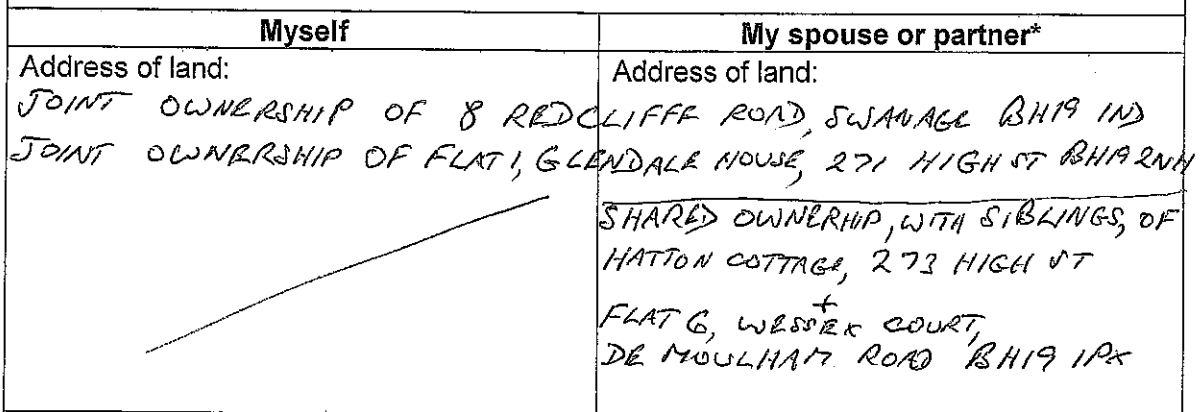 Myself
My spouse or partner*
Address of land:
Address of land:
JOINT OWNERSHIP OF 8 REDCLIFFE ROAD, SWANAGE BH19 1ND
JOINT OWNERSHIP OF FLAT 1, GLENDALE HOUSE, 271 HIGH ST BH19 2NH
SHARED OWNERHIP, WITH SIBLINGS, OF
HATTON COTTAGE, 273 HIGH ST
+
FLAT 6, WESSEX COURT,
DE MOULHAM ROAD BH19 1PX